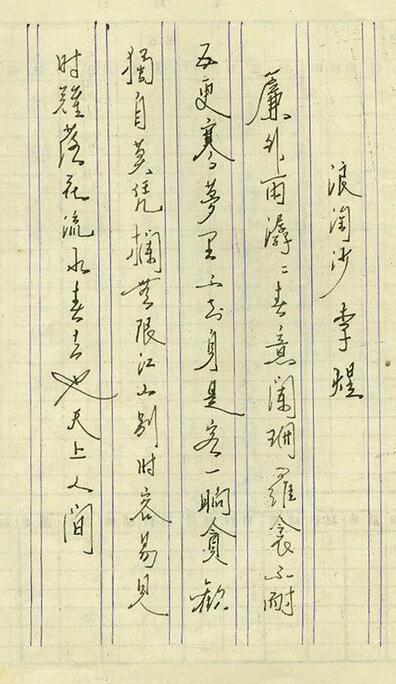 浪淘沙 李煜
簾外雨潺〻春意闌珊羅衾不耐
五更寒夢里不知身是客一晌貪歡
獨自莫凭欄無限江山别时容易見
时難落花流水春去也天上人間